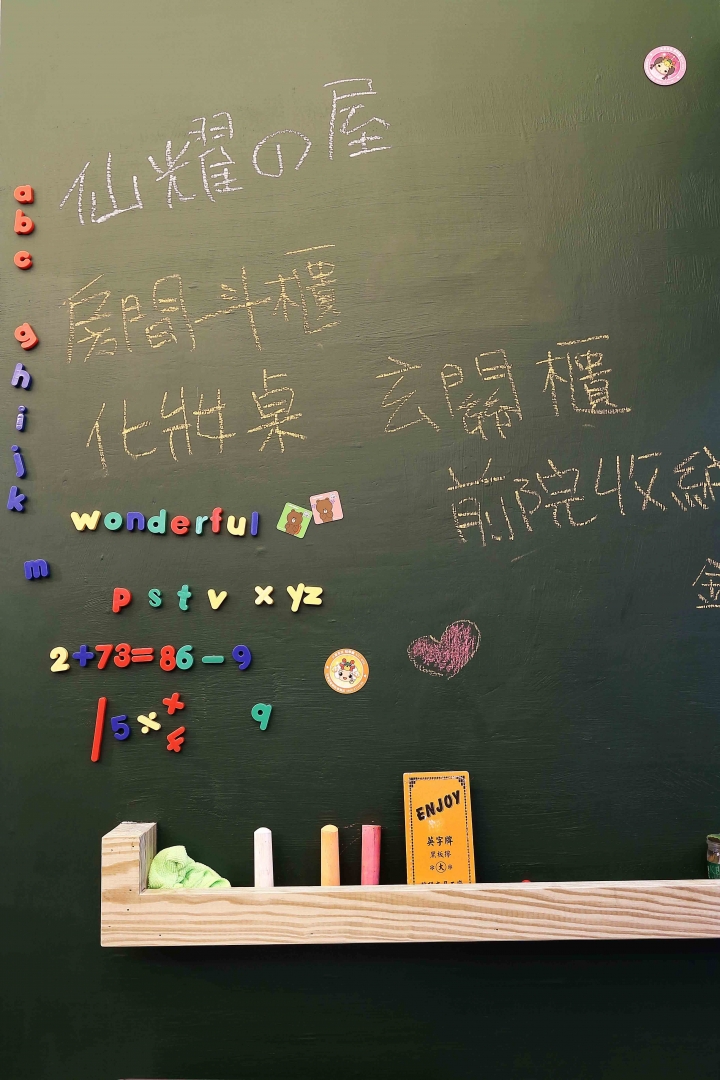 仙耀の屋
a
b
c
房間斗櫃
g
h
i
j
k
化妝桌 玄關櫃
前院收納
wonderful
m
p s t v x y z
2+73=86-9
15÷×4 9
ENJOY
英字牌
黑板擦
大